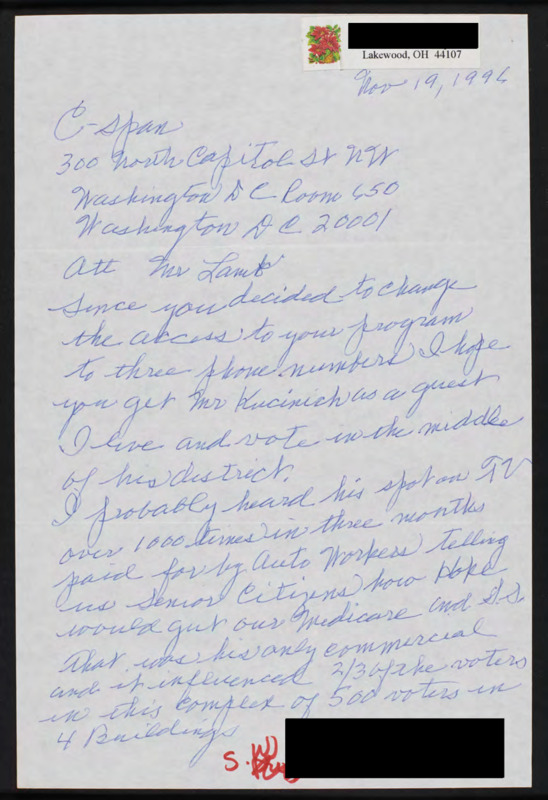 Lakewood, OH 44107
Nov 19, 1996
C-Span
300 North Capitol St NW
Washington DC Room 650
Washington DC 20001
Att Mr Lamb
Since you decided to change
the access to your program
to three phone numbers I hope
you get Mr Kucinich as a guest
I live and vote in the middle
of his district.
I probably heard his spot on TV
over 1000 times in three months
paid for by Auto Workers telling
us Senior Citizens how Hoke
would gut our Medicare and S.S.
That was his only commercial
and it influenced 2/3 of the voters
in this complex of 500 voters in
4 Buildings
S.